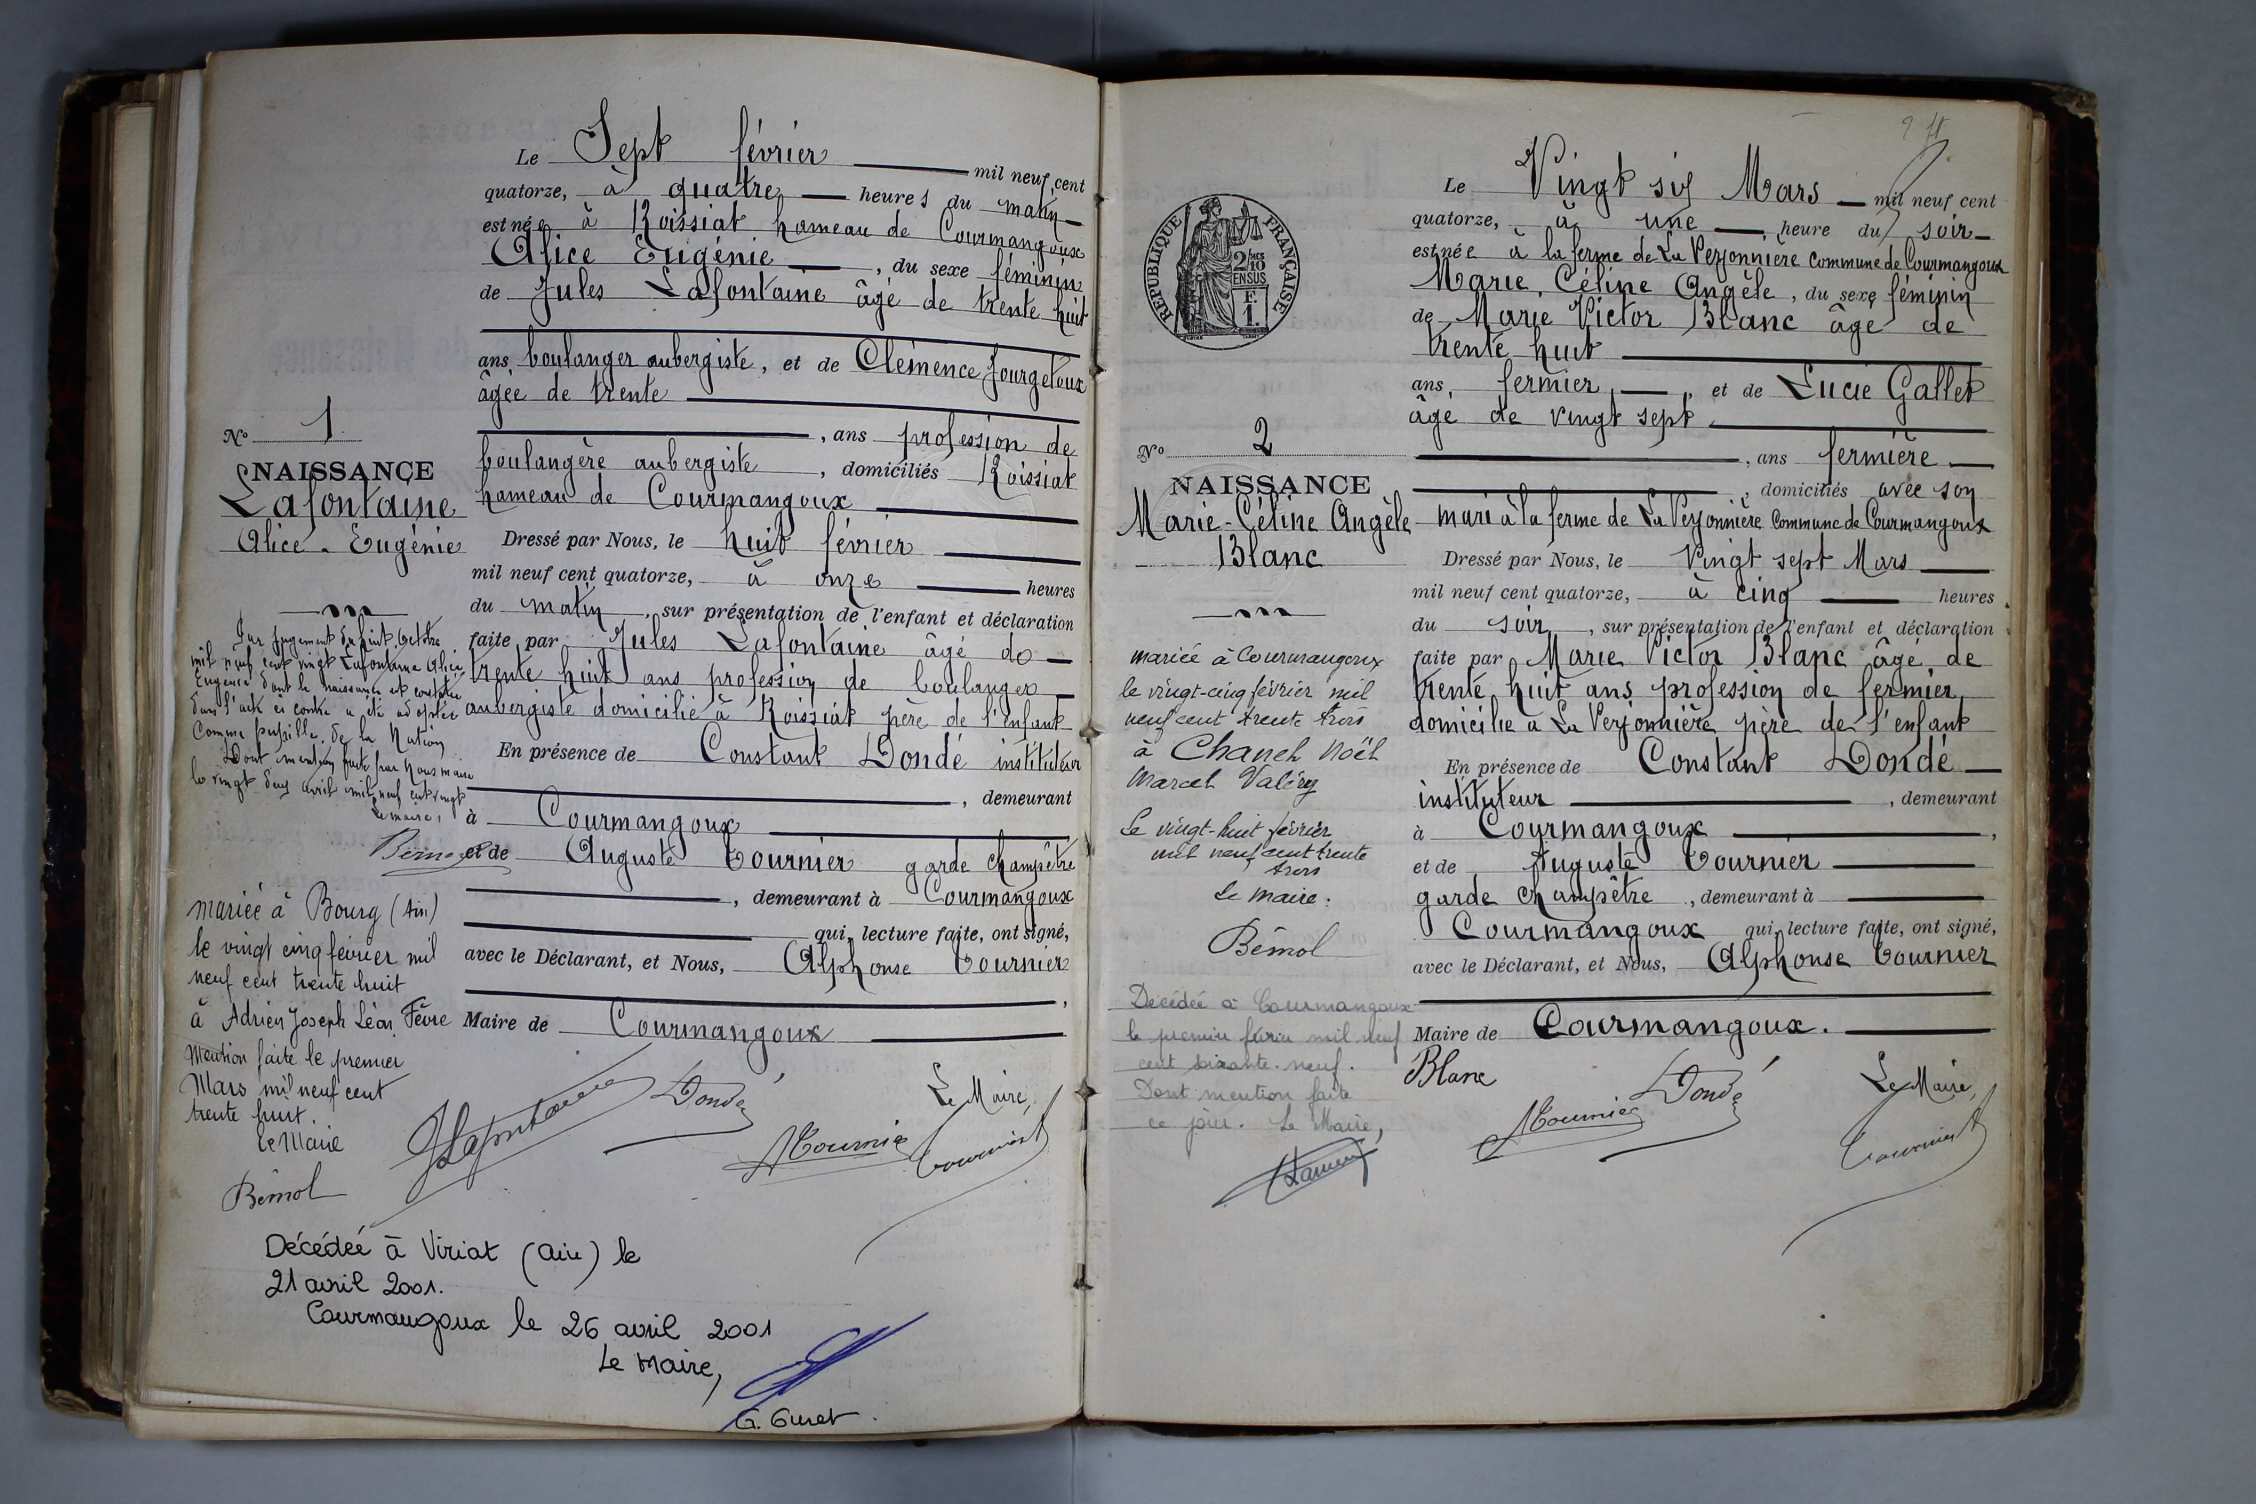 Le Sept février mil neuf cent
quatorze, à quatre heures du matin
est née à Roissiat hameau de Courmangoux
Alice Eugénie, du sexe féminin
de Jules Lafontaine âgé de trente huit
ans, boulanger aubergiste, et de Clémence Fourgetoux
âgée de trente
, ans profession de
boulangère aubergiste, domiciliés Roissiat
hameau de Courmangoux
Dressé par Nous, le huit février
mil neuf cent quatorze, à onze heures
du matin, sur présentation de l'enfant et déclaration
faite par Jules Lafontaine âgé de
trente huit ans profession de boulanger
aubergiste domicilié à Roissiat père de l'enfant
En présence de Constant Dondé instituteur
, demeurant
à Courmangoux
et de Auguste Tournier garde champêtre
, demeurant à Courmangoux
qui, lecture faite, ont signé,
avec le Déclarant, et Nous, Alphonse Tournier
,
Maire de Courmangoux
JLafontaine Dondé
ATournier
Le Maire,
Tournier A
No 1
NAISSANCE
Lafontaine
Alice - Eugénie
Par jugement du huit Octobre
mil neuf cent vingt Lafontaine Alice
Eugénie dont la naissance est constatée
dans l'acte ci contre a été adoptée
comme pupille de la Nation
Dont mention faite par Nous maire
le vingt deux avril mil neuf cent vingt
Le maire,
Bémol
mariée à Bourg (Ain)
le vingt cinq février mil
neuf cent trente huit
à Adrien Joseph Léon Fèvre
Mention faite le premier
Mars mil neuf cent
trente huit.
Le Maire
Bémol
Décédée à Viriat (Ain) le
21 avril 2001.
Courmangoux le 26 avril 2001
Le Maire,
2
Le Vingt six Mars mil neuf cent
quatorze, à une heure du soir
est née à la ferme de La Verjonnière commune de Courmangoux
Marie, Céline Angèle, du sexe féminin
de Marie Victor Blanc âgé de
trente huit
ans, fermier, et de Lucie Gallet
âgé de vingt sept
, ans fermière
, domiciliés avec son
mari à la ferme de La Verjonnière commune de Courmangoux
Dressé par Nous, le vingt sept Mars
mil neuf cent quatorze, à cinq heures
du soir, sur présentation de l'enfant et déclaration
faite par Marie Victor Blanc âgé de
trente huit ans profession de fermier
domicilié à La Verjonnière père de l'enfant
En présence de Constant Dondé
instituteur, demeurant
à Courmangoux,
et de Auguste Tournier
garde champêtre, demeurant à
Courmangoux qui, lecture faite, ont signé,
avec le Déclarant, et Nous, Alphonse Tournier
Maire de Courmangoux.
Blanc Dondé
ATournier
Le Maire,
Tournier A
RÉPUBLIQUE FRANÇAISE
2/10 EN SUS
F.
1.
No 2
NAISSANCE
Marie-Céline Angèle
Blanc
mariée à Courmangoux
le vingt-cinq février mil
neuf cent trente trois
à Chanel Noël
Marcel Valéry
Le vingt-huit février
mil neuf cent trente
trois
Le maire:
Bémol
Décédée à Courmangoux
le premier février mil neuf
cent soixante-neuf.
Dont mention faite
ce jour. Le Maire,